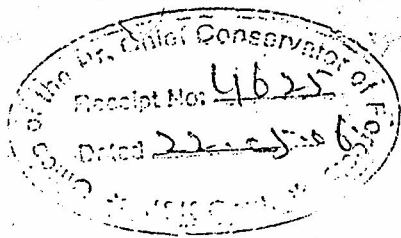 Office of the Pr. Chief Conservator of Forests
Receipt No: 4625
Dated 22-5-6